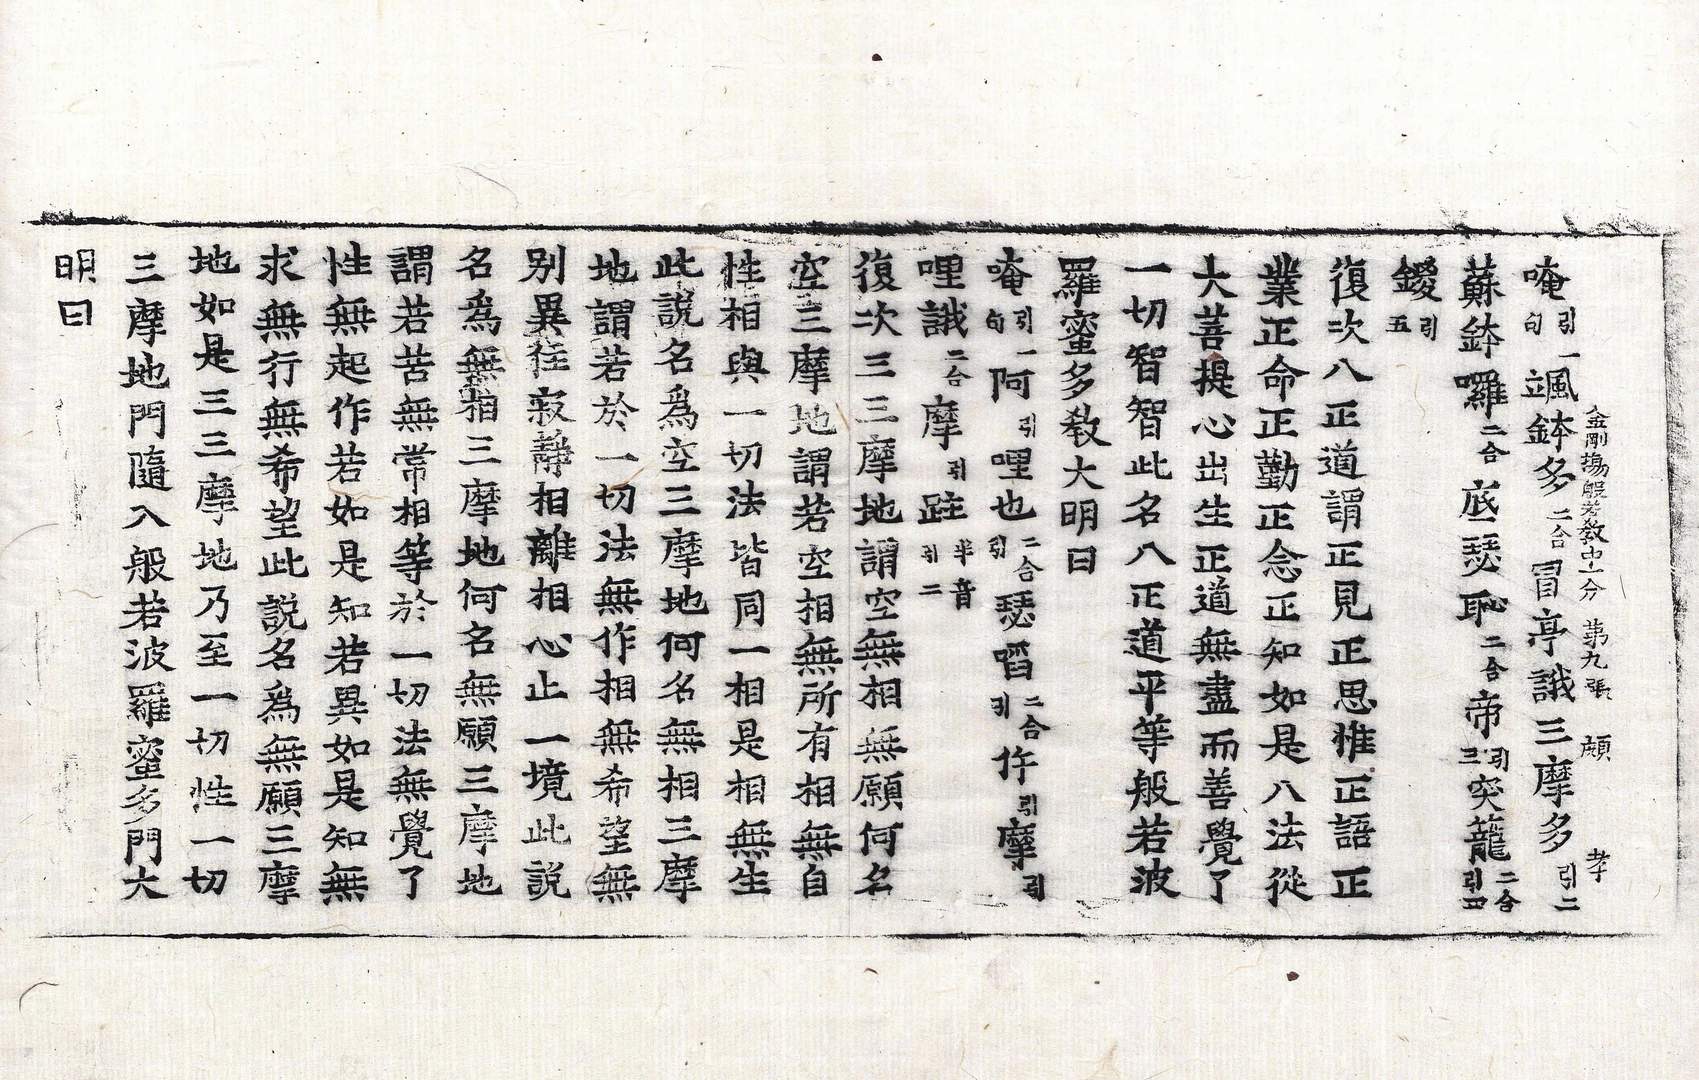 金剛場般若教中一分 第九張 頗 孝
唵引一句颯鉢多二合冒亭誐三摩多引二
蘇鉢囉二合底瑟恥二合帝引三突籠二合引四
鑁引五
復次八正道謂正見正思惟正語正
業正命正勤正念正知如是八法從
大菩提心出生正道無盡而善覺了
一切智智此名八正道平等般若波
羅蜜多教大明曰
唵引一句阿引哩也二合引瑟㗖二合引仵引摩引
哩誐二合摩引跓半音引二
復次三三摩地謂空無相無願何名
空三摩地謂若空相無所有相無自
性相與一切法皆同一相是相無生
此說名為空三摩地何名無相三摩
地謂若於一切法無作相無希望無
別異往寂靜相離相心止一境此說
名為無相三摩地何名無願三摩地
謂若苦無常相等於一切法無覺了
性無起作若如是知若異如是知無
求無行無希望此說名為無願三摩
地如是三三摩地乃至一切性一切
三摩地門隨入般若波羅蜜多門大
明曰